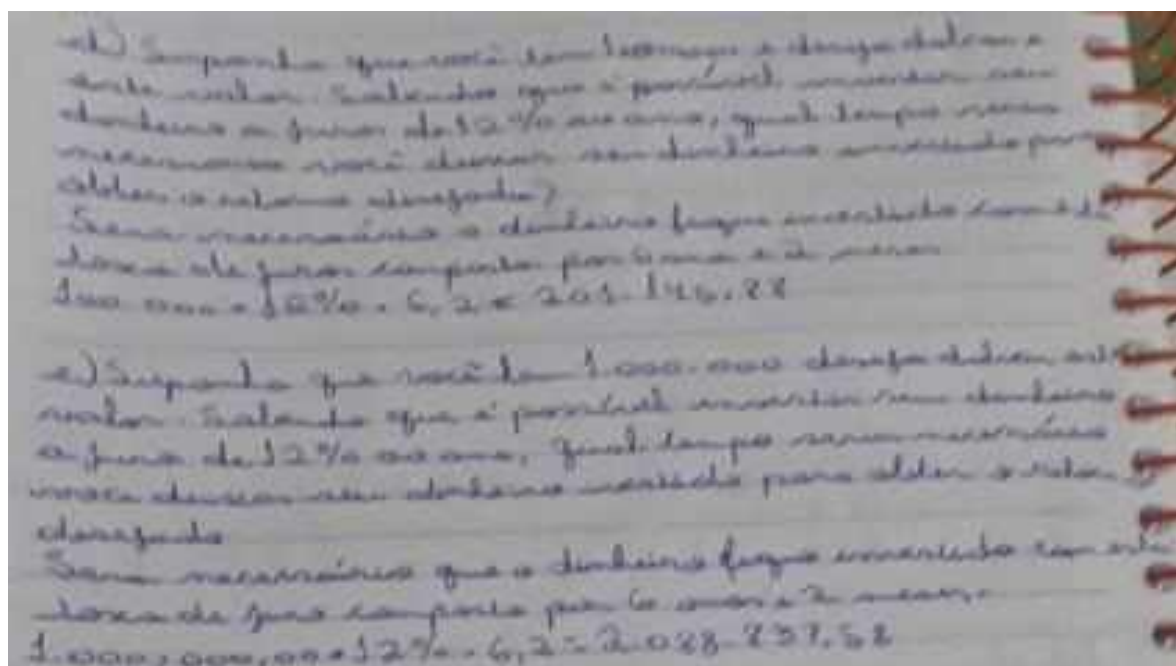 d) Suponha que você tem e deseja dobrar
este valor. Sabendo que é possível investir seu
dinheiro a juros de 12% ao ano, qual tempo seria
necessario você deixar seu dinheiro investido para
obter o retorno desejado?
Sera necessário o dinheiro fique investido com
taxa de juros composto por 6 anos e 2 meses
100.000 12% . 6,2
e) Suponha que você tem 1.000.000 deseja dobrar este
valor. Sabendo que é possível investir seu dinheiro
a juros de 12% ao ano, qual tempo seria necessário
voce deixar seu dinheiro investido para obter o
desejado
Sera necessário que o dinheiro fique investido com
taxa de juro composto por 6 anos e 2 meses.
1.000.000,00 12% . 6,2 =